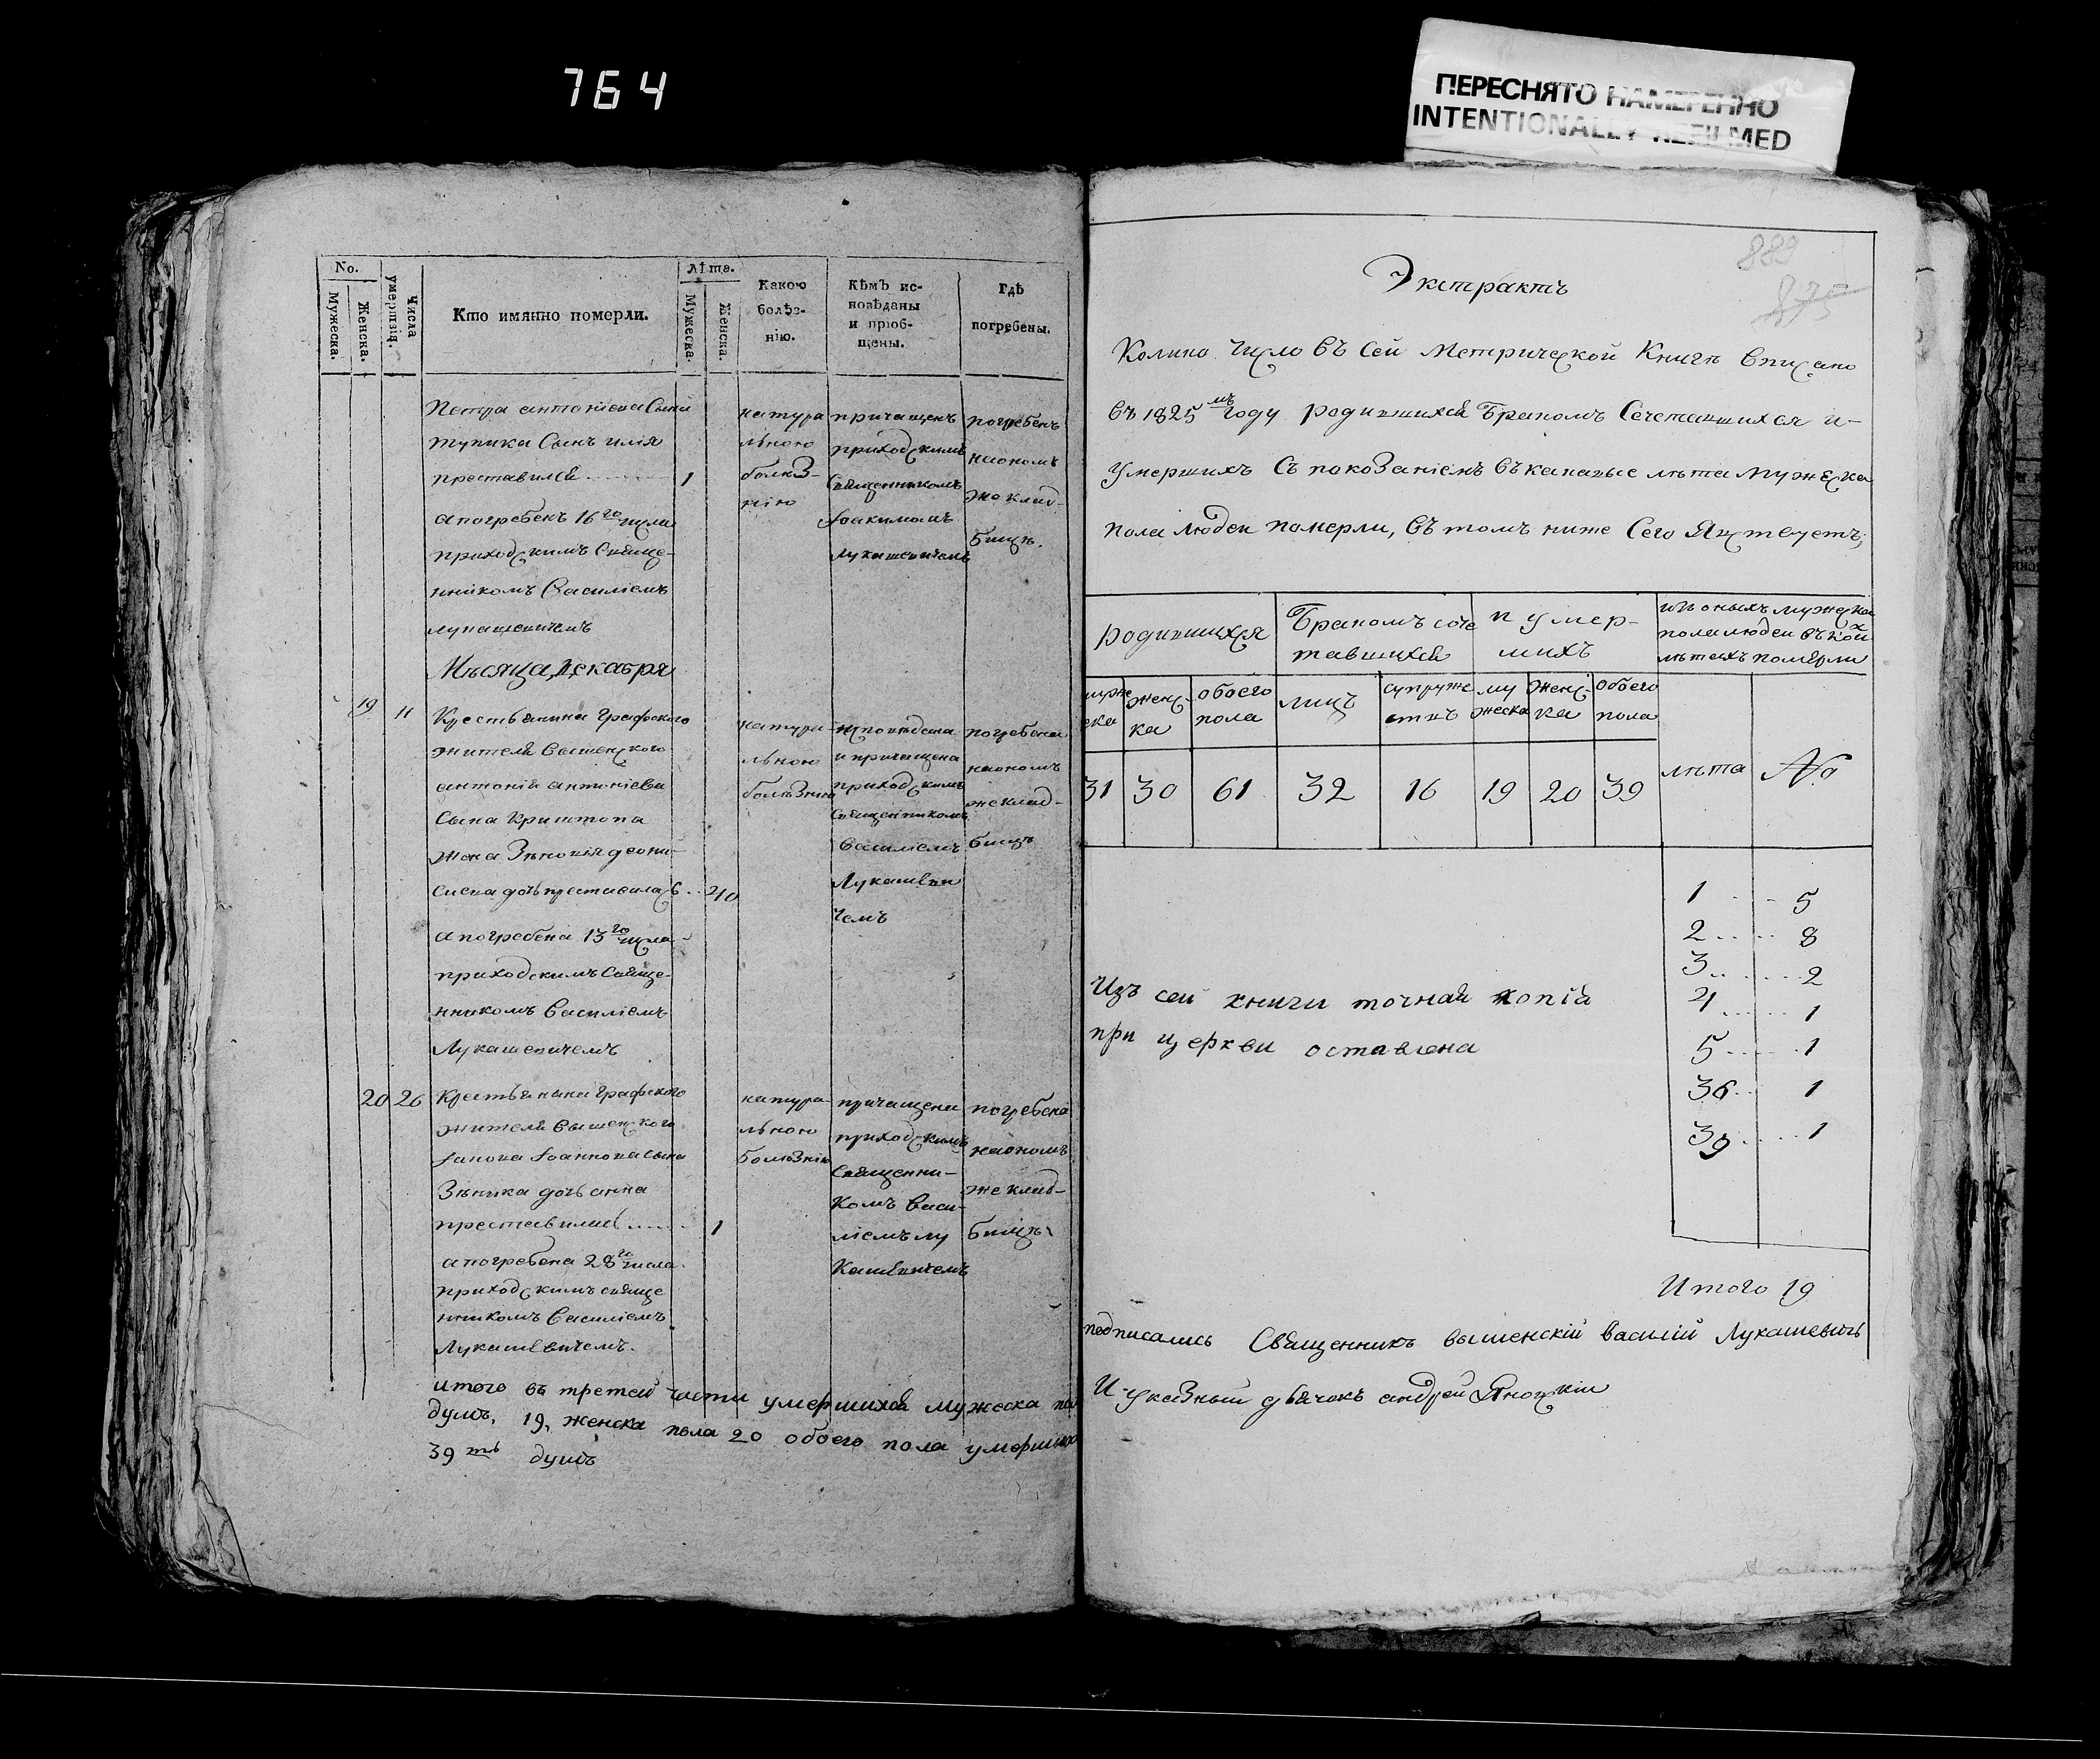 764
ПЕРЕСНЯТО НАМЕРЕННО
INTENTIONALLY REFILMED
No.
Мужеска.
Женска.
Числа умершвія.
Кто имянно померли.
Лѣта.
Мужеска.
Женска.
Какою болѣз-
нію.
Кѣмъ ис-
повѣданы
и пріоб-
щены.
Гдѣ
погребены.
Петра антоніева Сына
тупика Сынъ илія
преставился 1
а погребенъ 16го числа
приходскимъ Свяще-
нникомъ Василіемъ
лукашевичемъ
натура
льною
болѣз-
нію
причащенъ
приходскимъ
Священникомъ
Іоакимомъ
Лукашевичемъ
погребенъ
наономъ
же клад-
бищѣ.
Мѣсяца Декабря
19 11 Крестьянина Графского
жителя вышенского
антонія антоніева
Сына Криштопа
жена Зѣновія деони-
сиева дочь преставилась 40
а погребена 13го числа
приходскимъ Свяще-
нникомъ Василіемъ
Лукашевичемъ
натура-
льною
болѣзнію
исповѣдана
и причащена
приходскимъ
Священникомъ
Василіемъ
Лукашеви
чемъ
погребена
наономъ
же клад-
бищѣ
20 26 Крестьянина Графского
жителя вышенского
Іоаннова сына
Зѣнка дочь анна
преставилась 1
а погребена 28го числа
приходскимъ свяще
нникомъ Василіемъ
Лукашевичемъ.
натура-
льною
болѣзнію
причащена
приходскимъ
Священни-
комъ Васи-
ліемъ лу
кашевичемъ
погребена
наономъ
же клад-
бищѣ
итого въ третей части умершихся мужеска пол
душъ, 19, женска пола 20 обоего пола умерших
39ть душъ
889
875
Экстрактъ
Колико число въ Сей Метрической Книгѣ вписано
въ 1825мъ году родившихся Бракомъ Сочетавшихся и-
Умершихъ Съ показаніемъ въ каковые лѣта мужеска
пола людей померли, въ томъ ниже Сего Явствуетъ;
родившихся
Бракомъ соче
тавшихся
и умер-
шихъ
изъ оныхъ мужеска
пола людей въ коихъ
лѣтахъ померли
муже
ска
женс-
ка
обоего
пола
лицъ
супруже
ствъ
му
жеска
женс-
ка
обоего
пола
лѣта
No
31 30 61 32 16 19 20 39
1 5
2 8
3 2
4 1
5 1
36 1
39 1
Изъ сей книги точная копія
при церкви оставлена
Итого 19
подписались Священникъ вышенскій Василій Лукашевичъ
И указный дьячокъ андрей